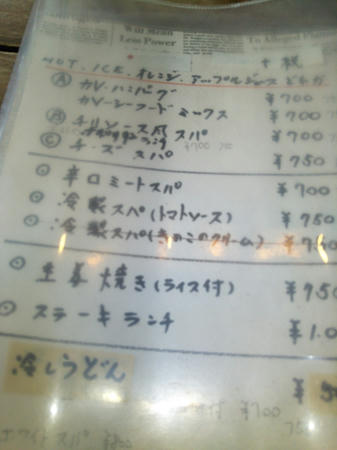 Will Mean
Less Power
To Alleged
+ 税
HOT. ICE. オレンジ. アップルジュース どれか
Ⓐ カレーハンバーグ ¥700
カレーシーフードミックス ¥700
Ⓑ チリソース風スパ ¥700
Ⓒ チーズスパ ¥750
⊙ 辛口ミートスパ ¥700
⊙ 冷製スパ(トマトソース) ¥750
⊙ 冷製スパ(きのこのクリーム)
⊙ 生姜焼き(ライス付) ¥950
⊙ ステーキランチ ¥1.0
冷しうどん ¥
ホワイトスパ ¥800